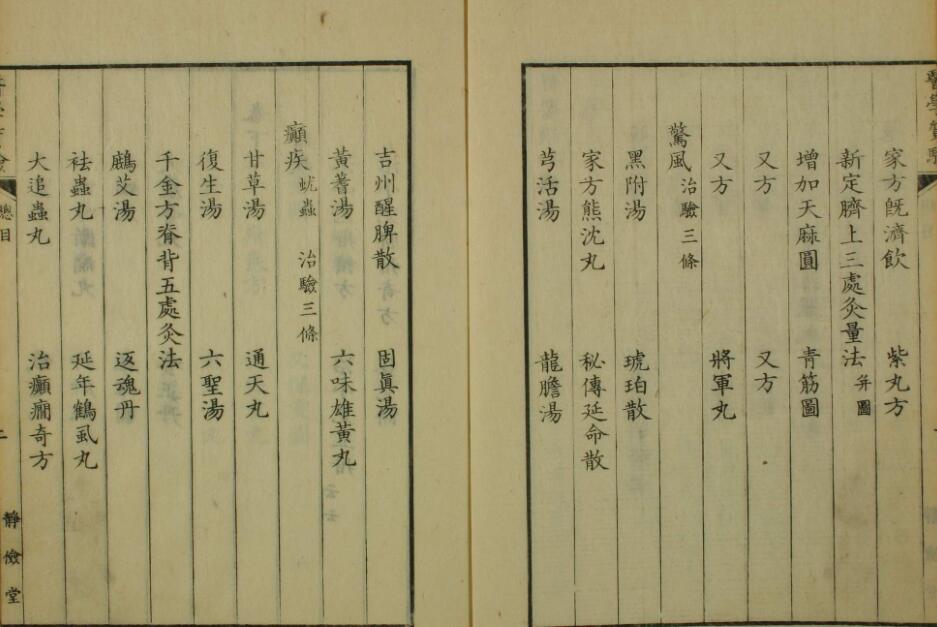 家方既濟飲 紫丸方
新定臍上三處灸量法 并圖
增加天麻圓 青筋圖
又方 又方
又方 將軍丸
驚風 治驗三條
黑附湯 琥珀散
家方熊沈丸 秘傳延命散
芎活湯 龍膽湯
吉州醒脾散 固眞湯
黃蓍湯 六味雄黃丸
癲疾 蚘蟲 治驗三條
甘草湯 通天丸
復生湯 六聖湯
千金方脊背五處灸法
鷓艾湯 返魂丹
祛蟲丸 延年鶴虱丸
大追蟲丸 治癲癇奇方
總目
靜儉堂